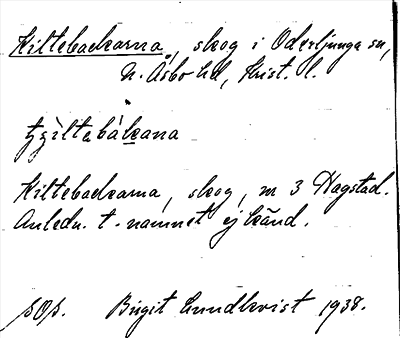 Kiltebackarna, skog i Oderljunga sn,
N. Åsbo hd, Krist. l.
tʒiltabákana
Kiltebackarna, skog, m 3 Hagstad.
Anledn. t. namnet ej känd.
Birgit Lundkvist 1938.